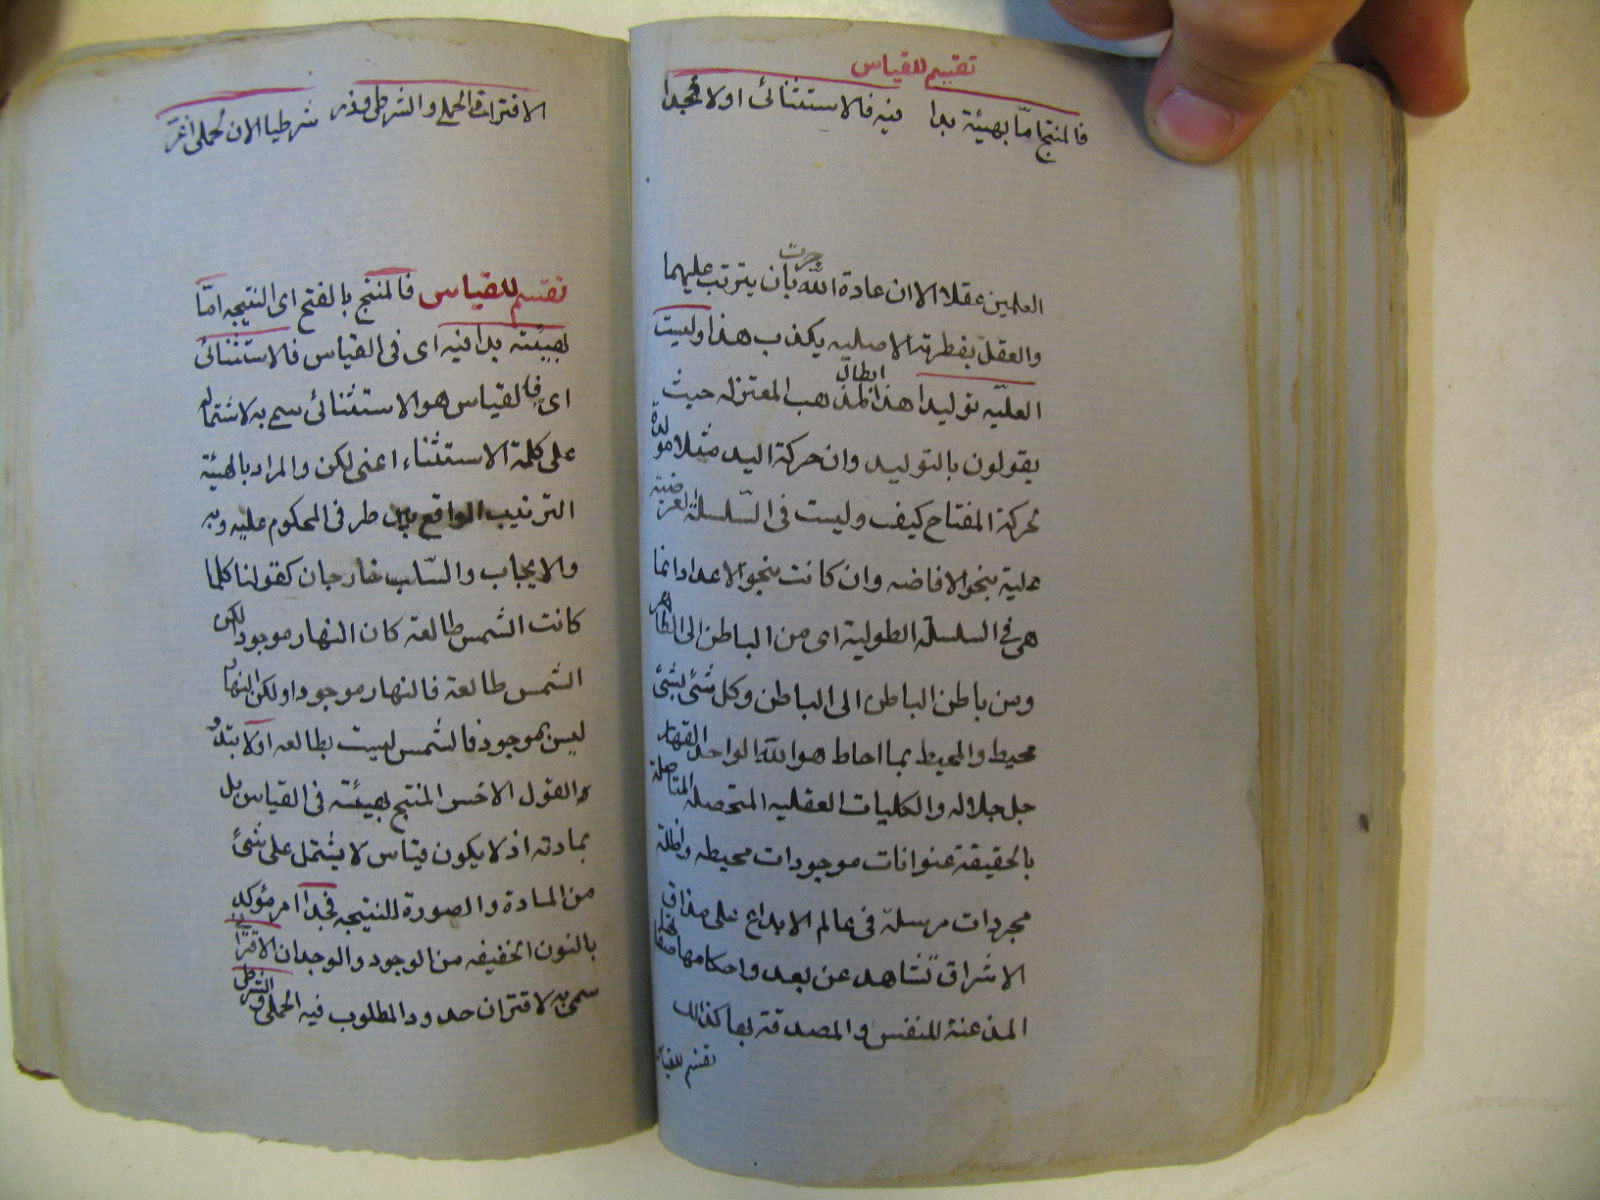 تقسيم للقياس
فالمنتج امّا بهيئة بدا فيه فالاستثنائى اولا فجدا
العلمين عقلا الا ان عادة الله جرت بأن يترتب عليهما
والعقل بفطرته الاصليه يكذب هذا وليست
العليّه توليدا هذا ابطال لمذهب المعتزله حيث
يقولون بالتوليد وان حركة اليد مثلا مولدة
لحركة المفتاح كيف وليست فى السّلسلة العرضية
علية بنحو الافاضه وان كانت بنحو الاعداد انما
هى فى السلسلة الطولية اى من الباطن الى الظاهر
ومن باطن الباطن الى الباطن وكل شئ بشئ
محيط والمحيط بما احاط هو الله الواحد القهار
جل جلاله والكليات العقليه المتحصله المتاصلة
بالحقيقة عنوانات موجودات محيطه
مجردات مرسلة فى عالم الابداع على مذاق
الاشراق تشاهد عن بعد واحكامها
المذعنة للنفس والمصدقة بها كذلك
تقسيم للقياس
الاقترانى الحملى والشرطى شرطيا الان لحملى اغرّ
تقسيم للقياس فالمنتج بالفتح اى النتيجه امّا
بهيئته بدا فيه اى فى القياس فالاستثنائى
اى فالقياس هو الاستثنائى سمى به لاشتماله
على كلمة الاستثناء اعنى لكن والمراد بالهيئة
الترتيب الواقع بين طرفى المحكوم عليه وبه
والايجاب والسّلب خارجان كقولنا كلما
كانت الشمس طالعة كان النهار موجود لكن
الشمس طالعة فالنهار موجود او لكن النهار
ليس بموجود فالشمس ليست بطالعه او لا
القول الاخس المنتج بهيئته فى القياس بل
بمادته اذ لا يكون قياس لا يشتمل على شئ
من المادة والصورة للنتيجه فجدا امر مؤكد
بالنون الخفيفه من الوجود والوجدان الاقترانى
سمى به لاقتران حدود المطلوب فيه الحملى والشرطى